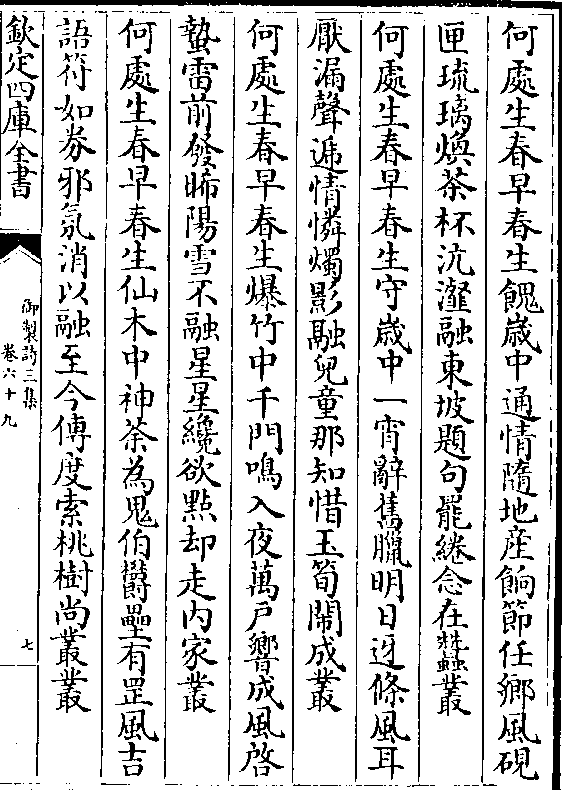 何處生春早春生餽歳中通情隨地産餉節任鄉風硯
匣琉璃煥茶杯沆瀣融東坡題句罷綣念在蠶叢
何處生春早春生守歳中一宵辭舊臘明日迓條風耳
厭漏聲遞情憐燭影融兒童那知惜玉筍鬧成叢
何處生春早春生爆竹中千門鳴入夜萬戸響成風啓
蟄雷前發晞陽雪不融星星纔欲點却走内家叢
何處生春早春生仙木中神荼為鬼伯欝壘有罡風吉
語符如券邪氛消以融至今傳度索桃樹尚叢叢
欽定四庫全書
御製詩三集
卷六十九
七